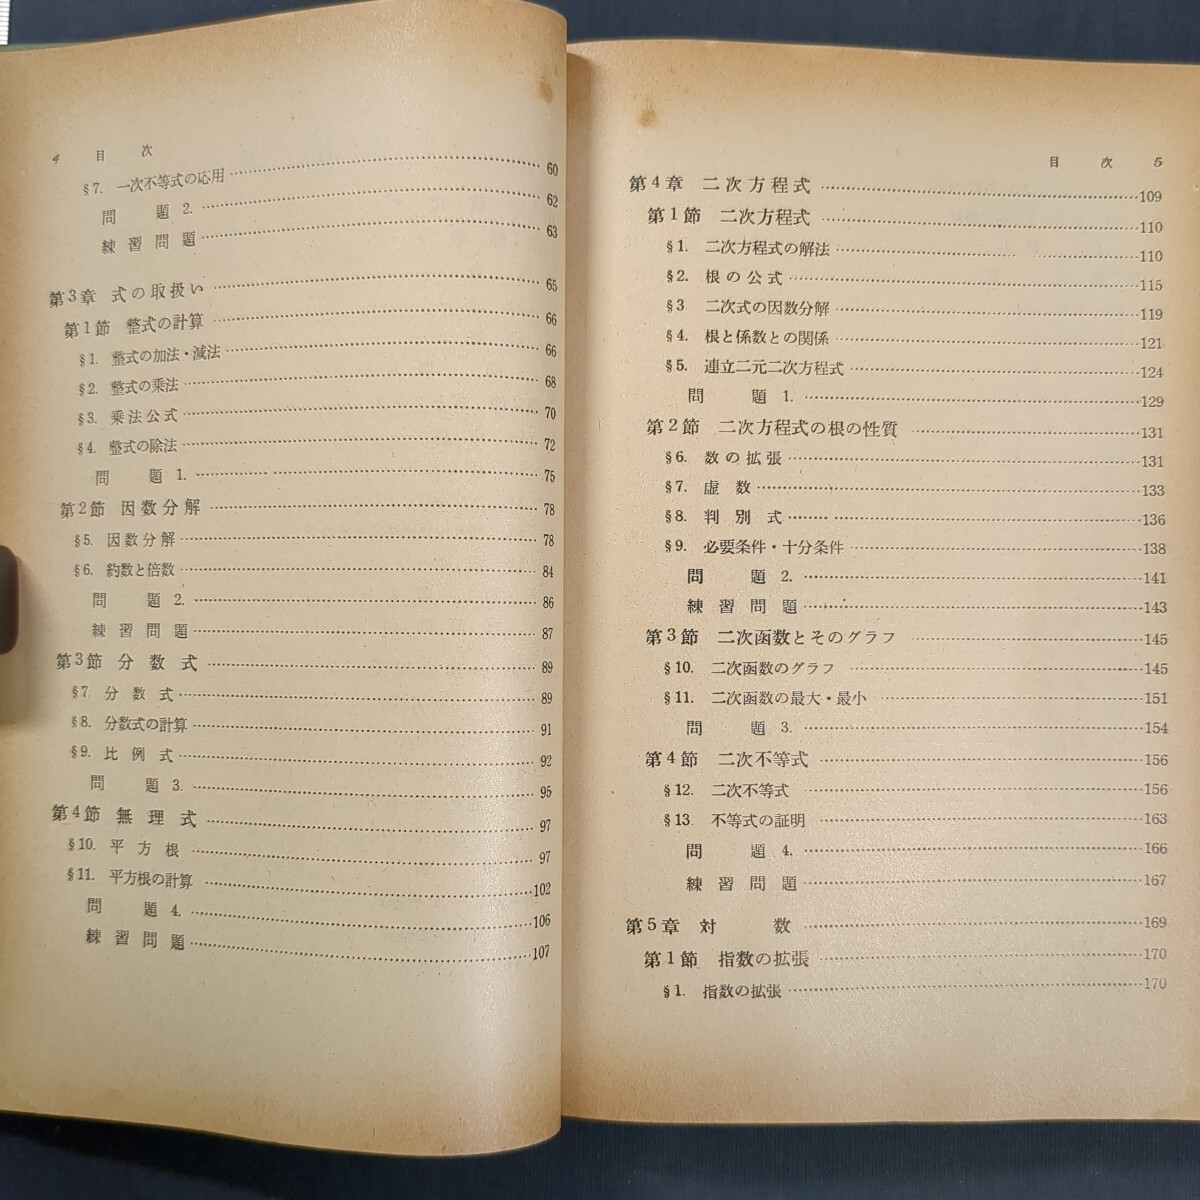 4 目 次
§7. 一次不等式の応用 60
問 題 2. 62
練習問題 63
第3章 式の取扱い 65
第1節 整式の計算 66
§1. 整式の加法・減法 66
§2. 整式の乗法 68
§3. 乗法公式 70
§4. 整式の除法 72
問 題 1. 75
第2節 因数分解 78
§5. 因数分解 78
§6. 約数と倍数 84
問 題 2. 86
練習問題 87
第3節 分数式 89
§7 分数式 89
§8. 分数式の計算 91
§9. 比例式 92
問 題 3. 95
第4節 無理式 97
§10. 平方根 97
§11. 平方根の計算 102
問 題 4. 106
練習問題 107
目 次 5
第4章 二次方程式 109
第1節 二次方程式 110
§1. 二次方程式の解法 110
§2. 根の公式 115
§3 二次式の因数分解 119
§4. 根と係数との関係 121
§5. 連立二元二次方程式 124
問 題 1. 129
第2節 二次方程式の根の性質 131
§6. 数の拡張 131
§7. 虚数 133
§8. 判別式 136
§9. 必要条件・十分条件 138
問 題 2. 141
練習問題 143
第3節 二次函数とそのグラフ 145
§10. 二次函数のグラフ 145
§11. 二次函数の最大・最小 151
問 題 3. 154
第4節 二次不等式 156
§12. 二次不等式 156
§13. 不等式の証明 163
問 題 4. 166
練習問題 167
第5章 対 数 169
第1節 指数の拡張 170
§1. 指数の拡張 170